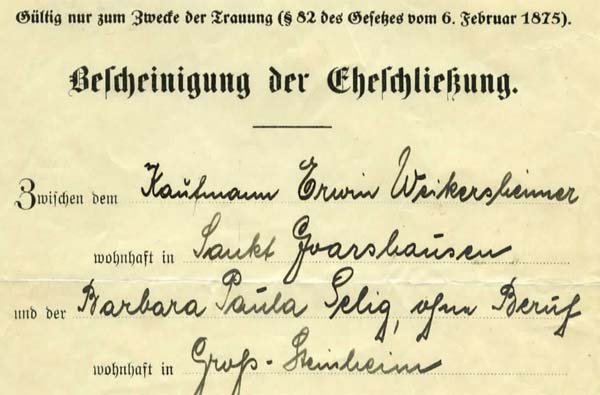 Gültig nur zum Zwecke der Trauung (§ 82 des Gesetzes vom 6. Februar 1875).
Bescheinigung der Eheschließung.
Zwischen dem Kaufmann Erwin Weikersheimer
wohnhaft in Sankt Goarshausen
und der Barbara Paula Selig, ohne Beruf
wohnhaft in Groß-Steinheim